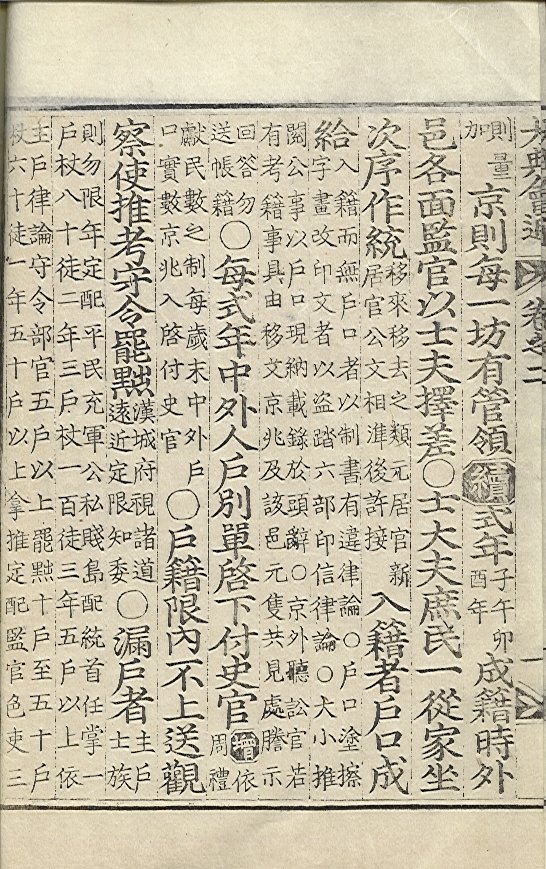 大典會通 卷之二 一
則量加京則每一坊有管領續式年子午卯酉年成籍時外
邑各面監官以士夫擇差○士大夫庶民一從家坐
次序作統移來移去之類元居官新居官公文相準後許接入籍者戶口成
給入籍而無戶口者以制書有違律論○戶口塗擦字畫改印文者以盜踏六部印信律論○大小推
閱公事以戶口現納載錄於頭辭○京外聽訟官若有考籍事具由移文京兆及該邑元隻共見處謄示
回答勿送帳籍○每式年中外人戶別單啓下付史官增依周禮
獻民數之制每歲末中外戶口實數京兆入啓付史官○戶籍限內不上送觀
察使推考守令罷黜漢城府視諸道遠近定限知委○漏戶者主戶士族
則勿限年定配平民充軍公私賤島配統首任掌一戶杖八十徒二年三戶杖一百徒三年五戶以上依
主戶律論守令部官五戶以上罷黜十戶至五十戶杖六十徒一年五十戶以上拿推定配監官色吏三